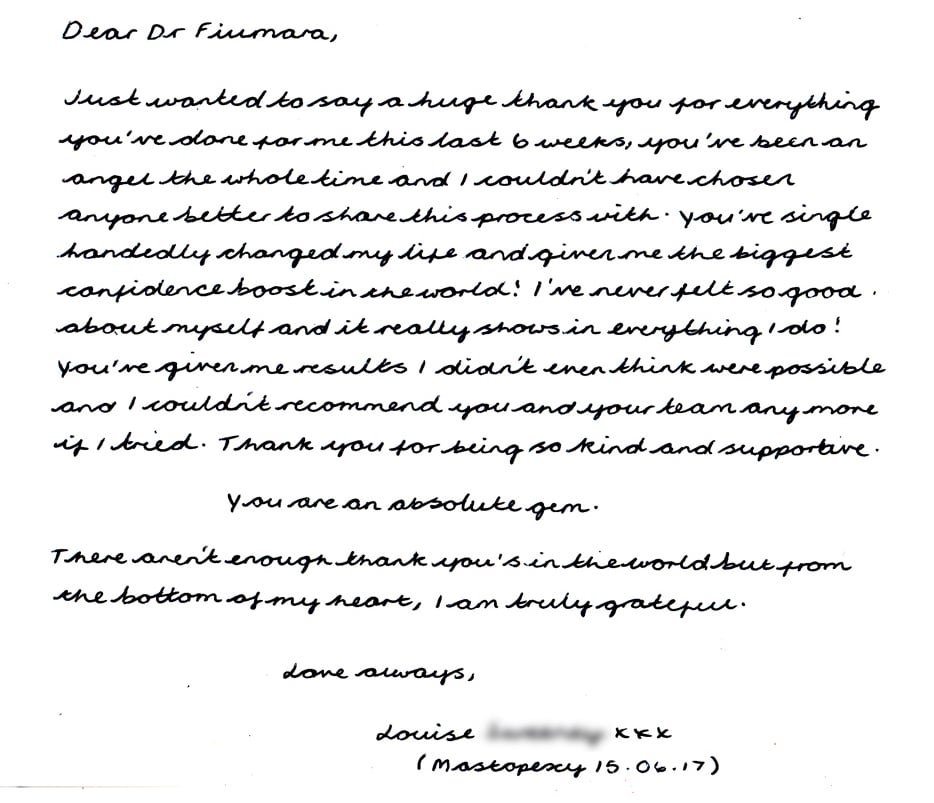 Dear Dr Fiumara,
Just wanted to say a huge thank you for everything
you've done for me this last 6 weeks, you've been an
angel the whole time and I couldn't have chosen
anyone better to share this process with. You've single
handedly changed my life and given me the biggest
confidence boost in the world! I've never felt so good.
about myself and it really shows in everything I do!
You've given me results I didn't even think were possible
and I couldn't recommend you and your team any more
if I tried. Thank you for being so kind and supportive.
You are an absolute gem.
There aren't enough thank you's in the world but from
the bottom of my heart, I am truly grateful.
Love always,
Louise xxx
(Mastopexy 15.06.17)